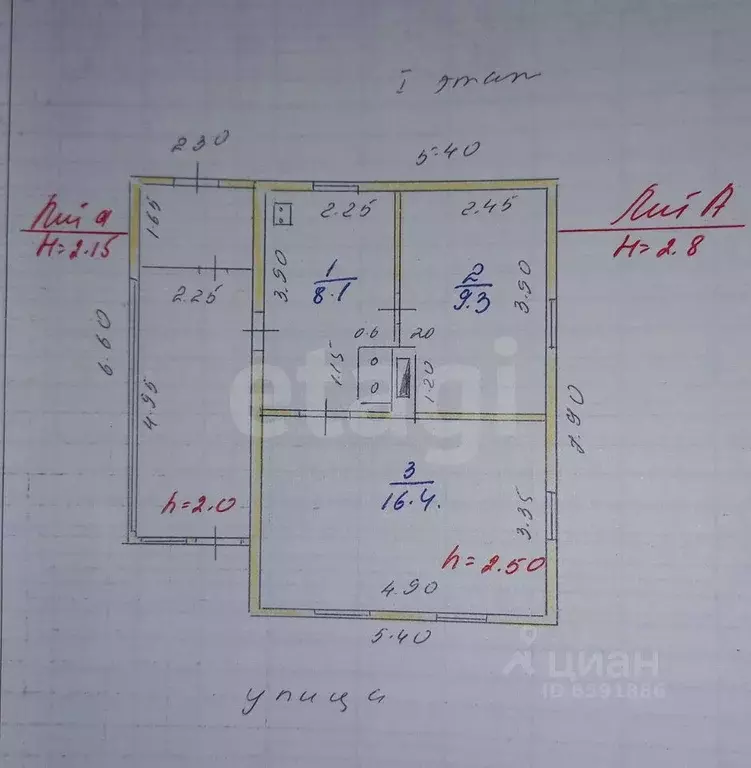 I этаж
2.30
5.40
Лит а
H=2.15
Лит А
H=2.8
1.65
2.25
2.45
3.90
1
8.1
2
9.3
3.90
2.25
0.6
20
6.60
1.15
1.20
4.95
7.90
3
16.4.
h=2.0
3.35
h=2.50
4.90
5.40
улица
etagi
циан
ID 6391886